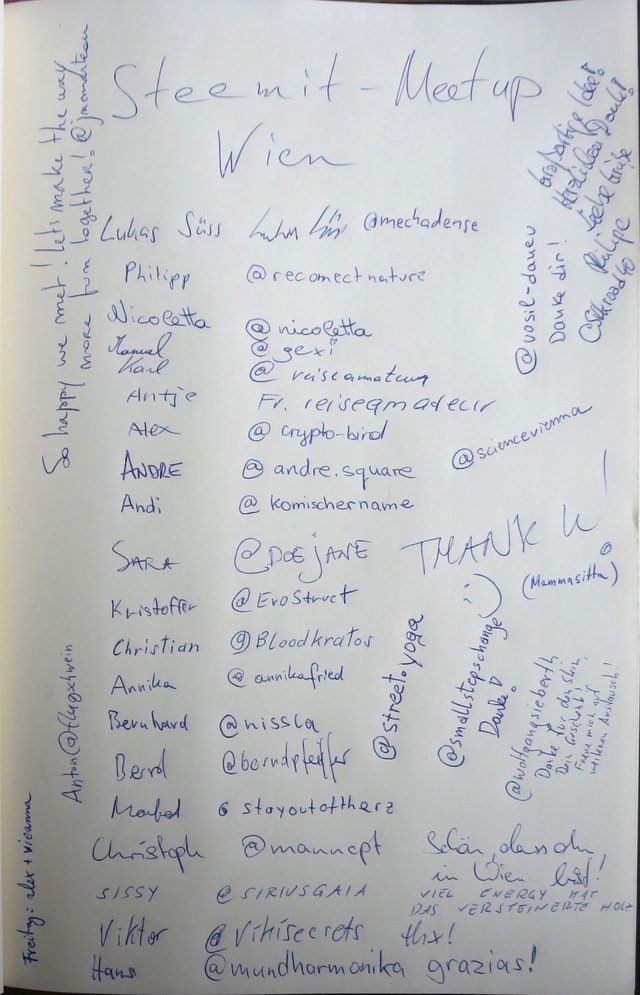 Steemit - Meetup
Wien
Lukas Süss @mechadense
Philipp @reconnectnature
Nicoletta @nicoletta
Manuel @gexi
Karl @reiseamateur
Antje Fr. reiseamateur
Alex @crypto-bird
@sciencevienna
ANDRE @andre.square
Andi @komischername
SARA @DOEjANE
THANK U!
(Mammasitta)
Kristoffer @EvoStruct
Christian @Bloodkratos
Annika @annikafried
Bernhard @nissla
Bernd @berndpfeiffer
@stayoutoftherz
Christoph @manncpt Schön, dass du
in Wien bist!
SISSY @SIRIUSGAIA VIEL ENERGY HAT
DAS VERSTEINERTE HOLZ
Viktor @vikisecrets thx!
Hans @mundharmonika grazias!
So happy we met! Let's make the way
more fun together! @jnmarteau
Anton@flugschwein
Freitag: alex + vieanna
Großartige Idee!
Herzlichen Dank!
Liebe Grüße
Philipe
@vasil-danev
Danke dir!
@street.yoga
@smallstepschange :)
Danke!
@wolfgangsieberth
Danke für den Stein,
Dein Geschenk!
Freue mich auf
weiteren Austausch!